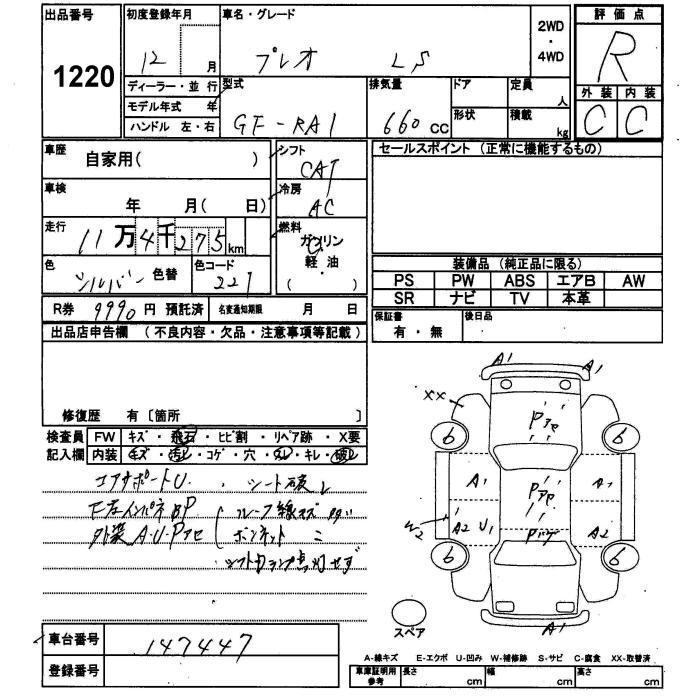 出品番号
1220
初度登録年月
12 月
車名・グレード
プレオ LS
2WD
・
4WD
評価点
R
外装 内装
C C
ディーラー・並行
モデル年式 年
ハンドル 左・右
型式
GF-RA1
排気量
660cc
ドア
形状
定員
人
積載
kg
車歴
自家用( )
シフト
CAT
車検
年 月( 日)
冷房
AC
走行
11万4千275km
燃料
ガソリン
軽油
( )
色
シルバー 色替
色コード
221
R券 9990円 預託済 名変通知期限 月 日
セールスポイント (正常に機能するもの)
装備品 (純正品に限る)
PS PW ABS エアB AW
SR ナビ TV 本革
保証書
有・無
後日品
出品店申告欄 (不良内容・欠品・注意事項等記載)
修復歴 有〔箇所 〕
検査員
記入欄
FW キズ・飛石・ヒビ割・リペア跡・X要
内装 キズ・汚レ・コゲ・穴・スレ・キレ・破レ
コアサポートU. シート破レ
外装A.U.Pアセ
ルーフ線キズ
ボンネット
シフト灯ランプ点灯せず
車台番号 147447
登録番号
A1 A1
XX
Pアセ
6 6
A1 Pアセ A1
W2 A2 U1 A2
6 6
A1
スペア
A-線キズ E-エクボ U-凹み W-補修跡 S-サビ C-腐食 XX-取替済
車庫証明用
参考
長さ cm 幅 cm 高さ cm